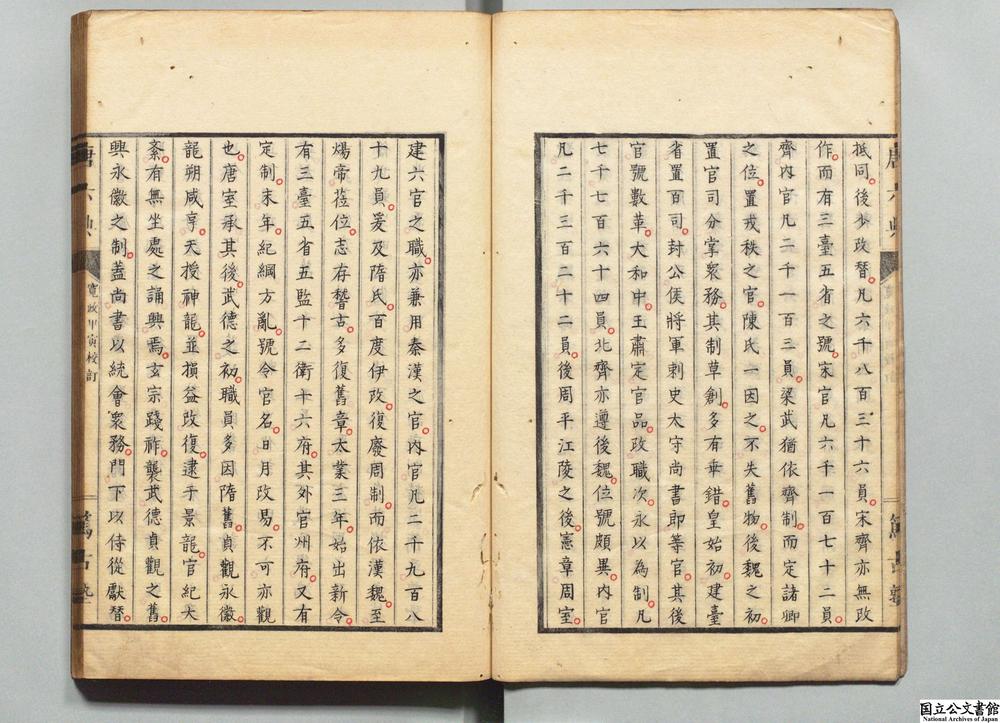 抵同後少改替凡六千八百三十六員宋齊亦無改
作而有三臺五省之號宋官凡六千一百七十二員
齊內官凡二千一百三員梁武猶依齊制而定諸卿
之位置戎秩之官陳氏一因之不失舊物後魏之初
置官司分掌衆務其制草創多有乖錯皇始初建臺
省置百司封公侯將軍刺史太守尚書郎等官其後
官號數革大和中王肅定官品改職次永以為制凡
七千七百六十四員北齊亦遵後魏位號頗異內官
凡二千三百二十二員後周平江陵之後憲章周室
唐六典
建六官之職亦兼用秦漢之官內官凡二千九百八
十九員爰及隋氏百度伊改復廢周制而依漢魏至
煬帝莅位志存稽古多復舊章太業三年始出新令
有三臺五省五監十二衛十六府其外官州府又有
定制末年紀綱方亂號令官名日月改易不可亦觀
也唐室承其後武德之初職員多因隋舊貞觀永徽
龍朔咸亨天授神龍並損益改復逮于景龍官紀大
紊有無坐處之誦興焉玄宗踐祚襲武德貞觀之舊
興永徽之制蓋尚書以統會衆務門下以侍從獻替
唐六典
寬政甲寅校訂
国立公文書館
National Archives of Japan